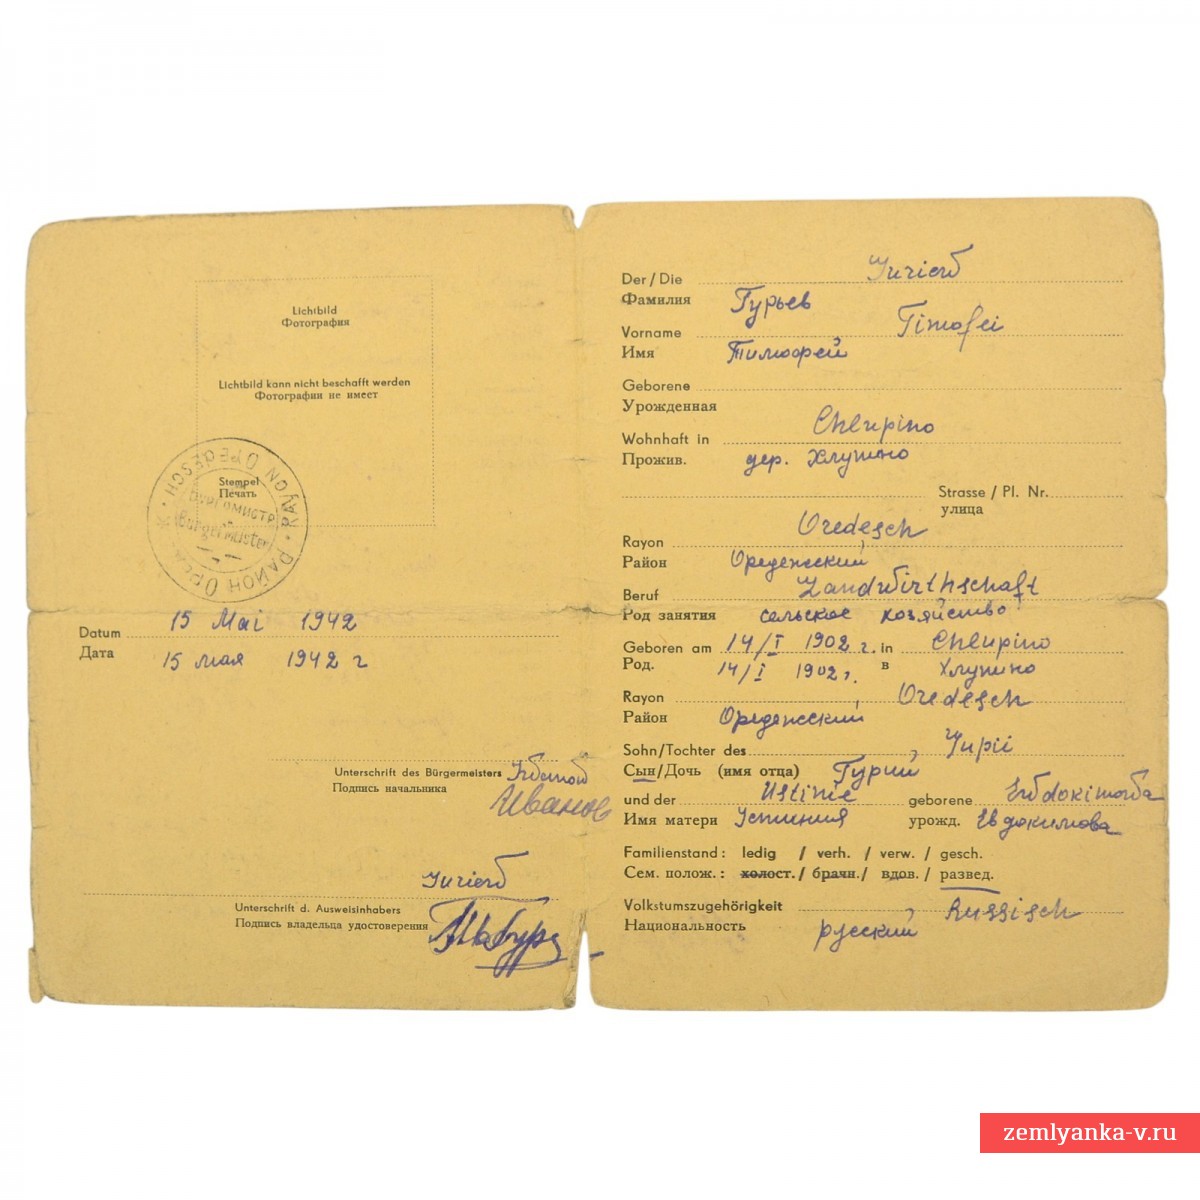 Lichtbild
Фотография
Lichtbild kann nicht beschafft werden
Фотографии не имест
Stempel
Печать
Бургомистр
Bürgermeister
РАЙОН
RAYON OREDESCH
15 Mai 1942
Datum
Дата
15 мая 1942 г
Unterschrift des Bürgermeisters
Подпись начальника
Иванов
Unterschrift d. Ausweisinhabers
Подпись владельца удостоверения
Der / Die
Фамилия Гурьев
Vorname Timofei
Имя Тимофей
Geborene
Урожденная
Wohnhaft in Chlupino
Прожив. дер. Хлупино
Strasse / Pl. Nr.
улица
Rayon Oredesch
Район Оредежский
Beruf Landwirthschaft
Род занятия сельское хозяйство
Geboren am 14/I 1902 г. in Chlupino
Род. 14/I 1902 г. в Хлупино
Rayon Oredesch
Район Оредежский
Sohn/Tochter des
Сын/Дочь (имя отца) Гурий
und der Ustinie geborene
Имя матери Устиния урожд. Евдокимова
Familienstand: ledig / verh. / verw. / gesch.
Сем. полож.: холост. / брачн. / вдов. / развед.
Volkstumszugehörigkeit Russisch
Национальность русский
zemlyanka-v.ru